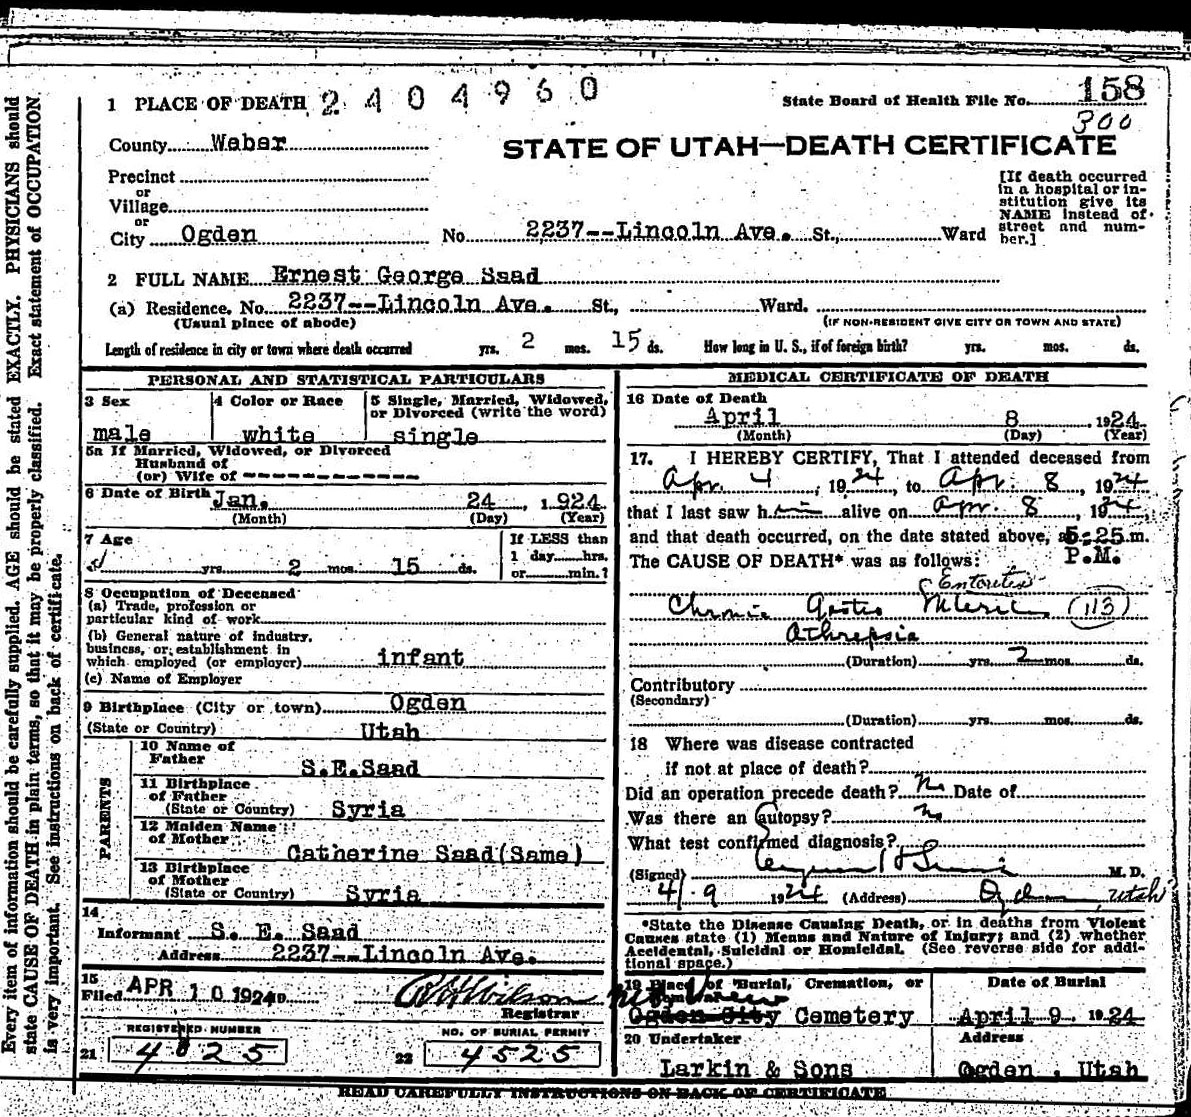 1 PLACE OF DEATH 2404960
State Board of Health File No. 158
300
County Weber
STATE OF UTAH—DEATH CERTIFICATE
Precinct
or
Village
or
City Ogden No. 2237--Lincoln Ave. St., Ward
[If death occurred
in a hospital or in-
stitution give its
NAME instead of
street and num-
ber.]
2 FULL NAME Ernest George Saad
(a) Residence, No. 2237--Lincoln Ave. St., Ward.
(Usual place of abode) (IF NON-RESIDENT GIVE CITY OR TOWN AND STATE)
Length of residence in city or town where death occurred yrs. 2 mos. 15 ds. How long in U. S., if of foreign birth? yrs. mos. ds.
PERSONAL AND STATISTICAL PARTICULARS
3 Sex 4 Color or Race 5 Single, Married, Widowed,
or Divorced (write the word)
male white single
5a If Married, Widowed, or Divorced
Husband of
(or) Wife of -------------
6 Date of Birth Jan. 24, 1924
(Month) (Day) (Year)
7 Age If LESS than
1 day hrs.
yrs. 2 mos. 15 ds. or min.?
8 Occupation of Deceased
(a) Trade, profession or
particular kind of work
(b) General nature of industry,
business, or establishment in
which employed (or employer) infant
(c) Name of Employer
9 Birthplace (City or town) Ogden
(State or Country) Utah
PARENTS
10 Name of
Father S.E.Saad
11 Birthplace
of Father
(State or Country) Syria
12 Maiden Name
of Mother
Catherine Saad(Same)
13 Birthplace
of Mother
(State or Country) Syria
14
Informant S. E. Saad
Address 2237--Lincoln Ave.
15
Filed APR 10 1924 RH Wilson
Registrar
REGISTERED NUMBER NO. OF BURIAL PERMIT
21 4825 22 4525
MEDICAL CERTIFICATE OF DEATH
16 Date of Death
April 8 1924
(Month) (Day) (Year)
17. I HEREBY CERTIFY, That I attended deceased from
Apr. 4, 1924, to Apr. 8, 1924
that I last saw him alive on Apr. 8, 1924,
and that death occurred, on the date stated above, at 5:25 m.
P.M.
The CAUSE OF DEATH* was as follows:
Enteritis
Chronic Gastro (113)
Athrepsia
(Duration) yrs. 2 mos. ds.
Contributory
(Secondary)
(Duration) yrs. mos. ds.
18 Where was disease contracted
if not at place of death?
Did an operation precede death? No Date of
Was there an autopsy? No
What test confirmed diagnosis?
(Signed) M. D.
4/9 1924 (Address) Ogden, Utah
*State the Disease Causing Death, or in deaths from Violent
Causes state (1) Means and Nature of Injury; and (2) whether
Accidental, Suicidal or Homicidal. (See reverse side for addi-
tional space.)
19 Place of Burial, Cremation, or Date of Burial
Ogden City Cemetery April 9. 1924
20 Undertaker Address
Larkin & Sons Ogden, Utah
READ CAREFULLY INSTRUCTIONS ON BACK OF CERTIFICATE
Every item of information should be carefully supplied. AGE should be stated EXACTLY. PHYSICIANS should
state CAUSE OF DEATH in plain terms, so that it may be properly classified. Exact statement of OCCUPATION
is very important. See instructions on back of certificate.